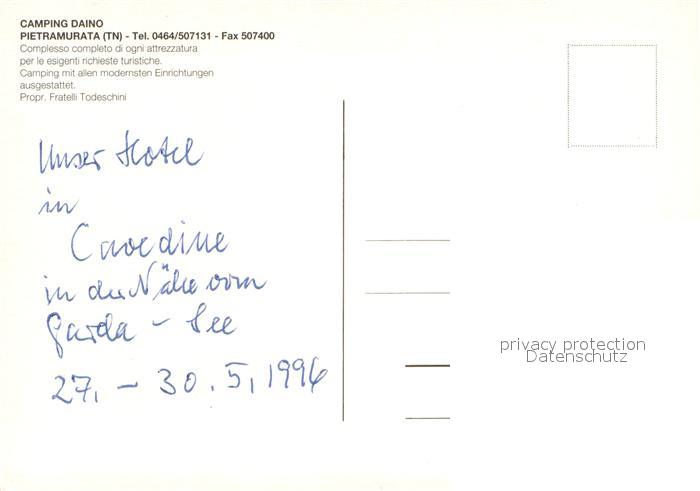 CAMPING DAINO
PIETRAMURATA (TN) - Tel. 0464/507131 - Fax 507400
Complesso completo di ogni attrezzatura
per le esigenti richieste turistiche.
Camping mit allen modernsten Einrichtungen
ausgestattet.
Propr. Fratelli Todeschini
Unser Hotel
in
Cavedine
in der Nähe vom
Garda - See
27. - 30. 5. 1994
privacy protection
Datenschutz